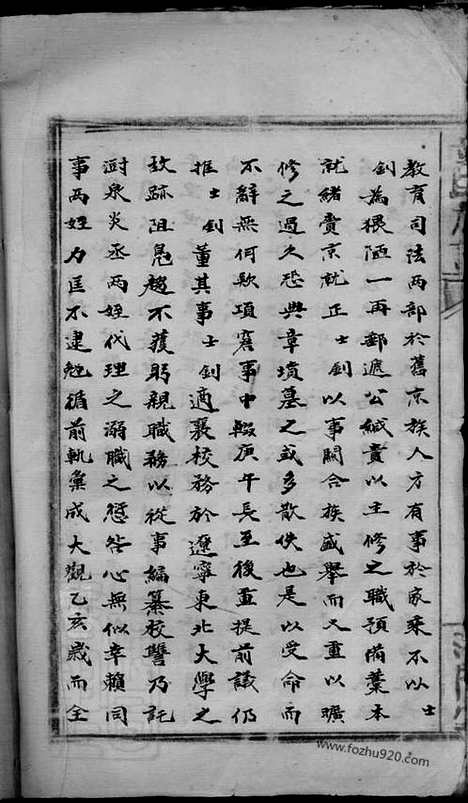 教育司法兩部於舊京族人方有事於家乘不以士
釗為猥陋一再郵遞公緘責以主修之職預備藁本
就緒賫京就正士釗以事關合族盛舉而又重以曠
修之過久恐典章墳墓之或多散佚也是以受命而
不辭無何欵項窘事中輟庚午長至後重提前議仍
推士釗董其事士釗適襄校務於遼寧東北大學之
故跡阻鳧趨不獲躬親職務以從事編纂校讐乃託
澍泉炎丞兩姪代理之溺職之愆咎心無似幸賴同
事兩姪力匡不逮勉循前軌彙成大觀乙亥歲而全
www.fozhu920.com